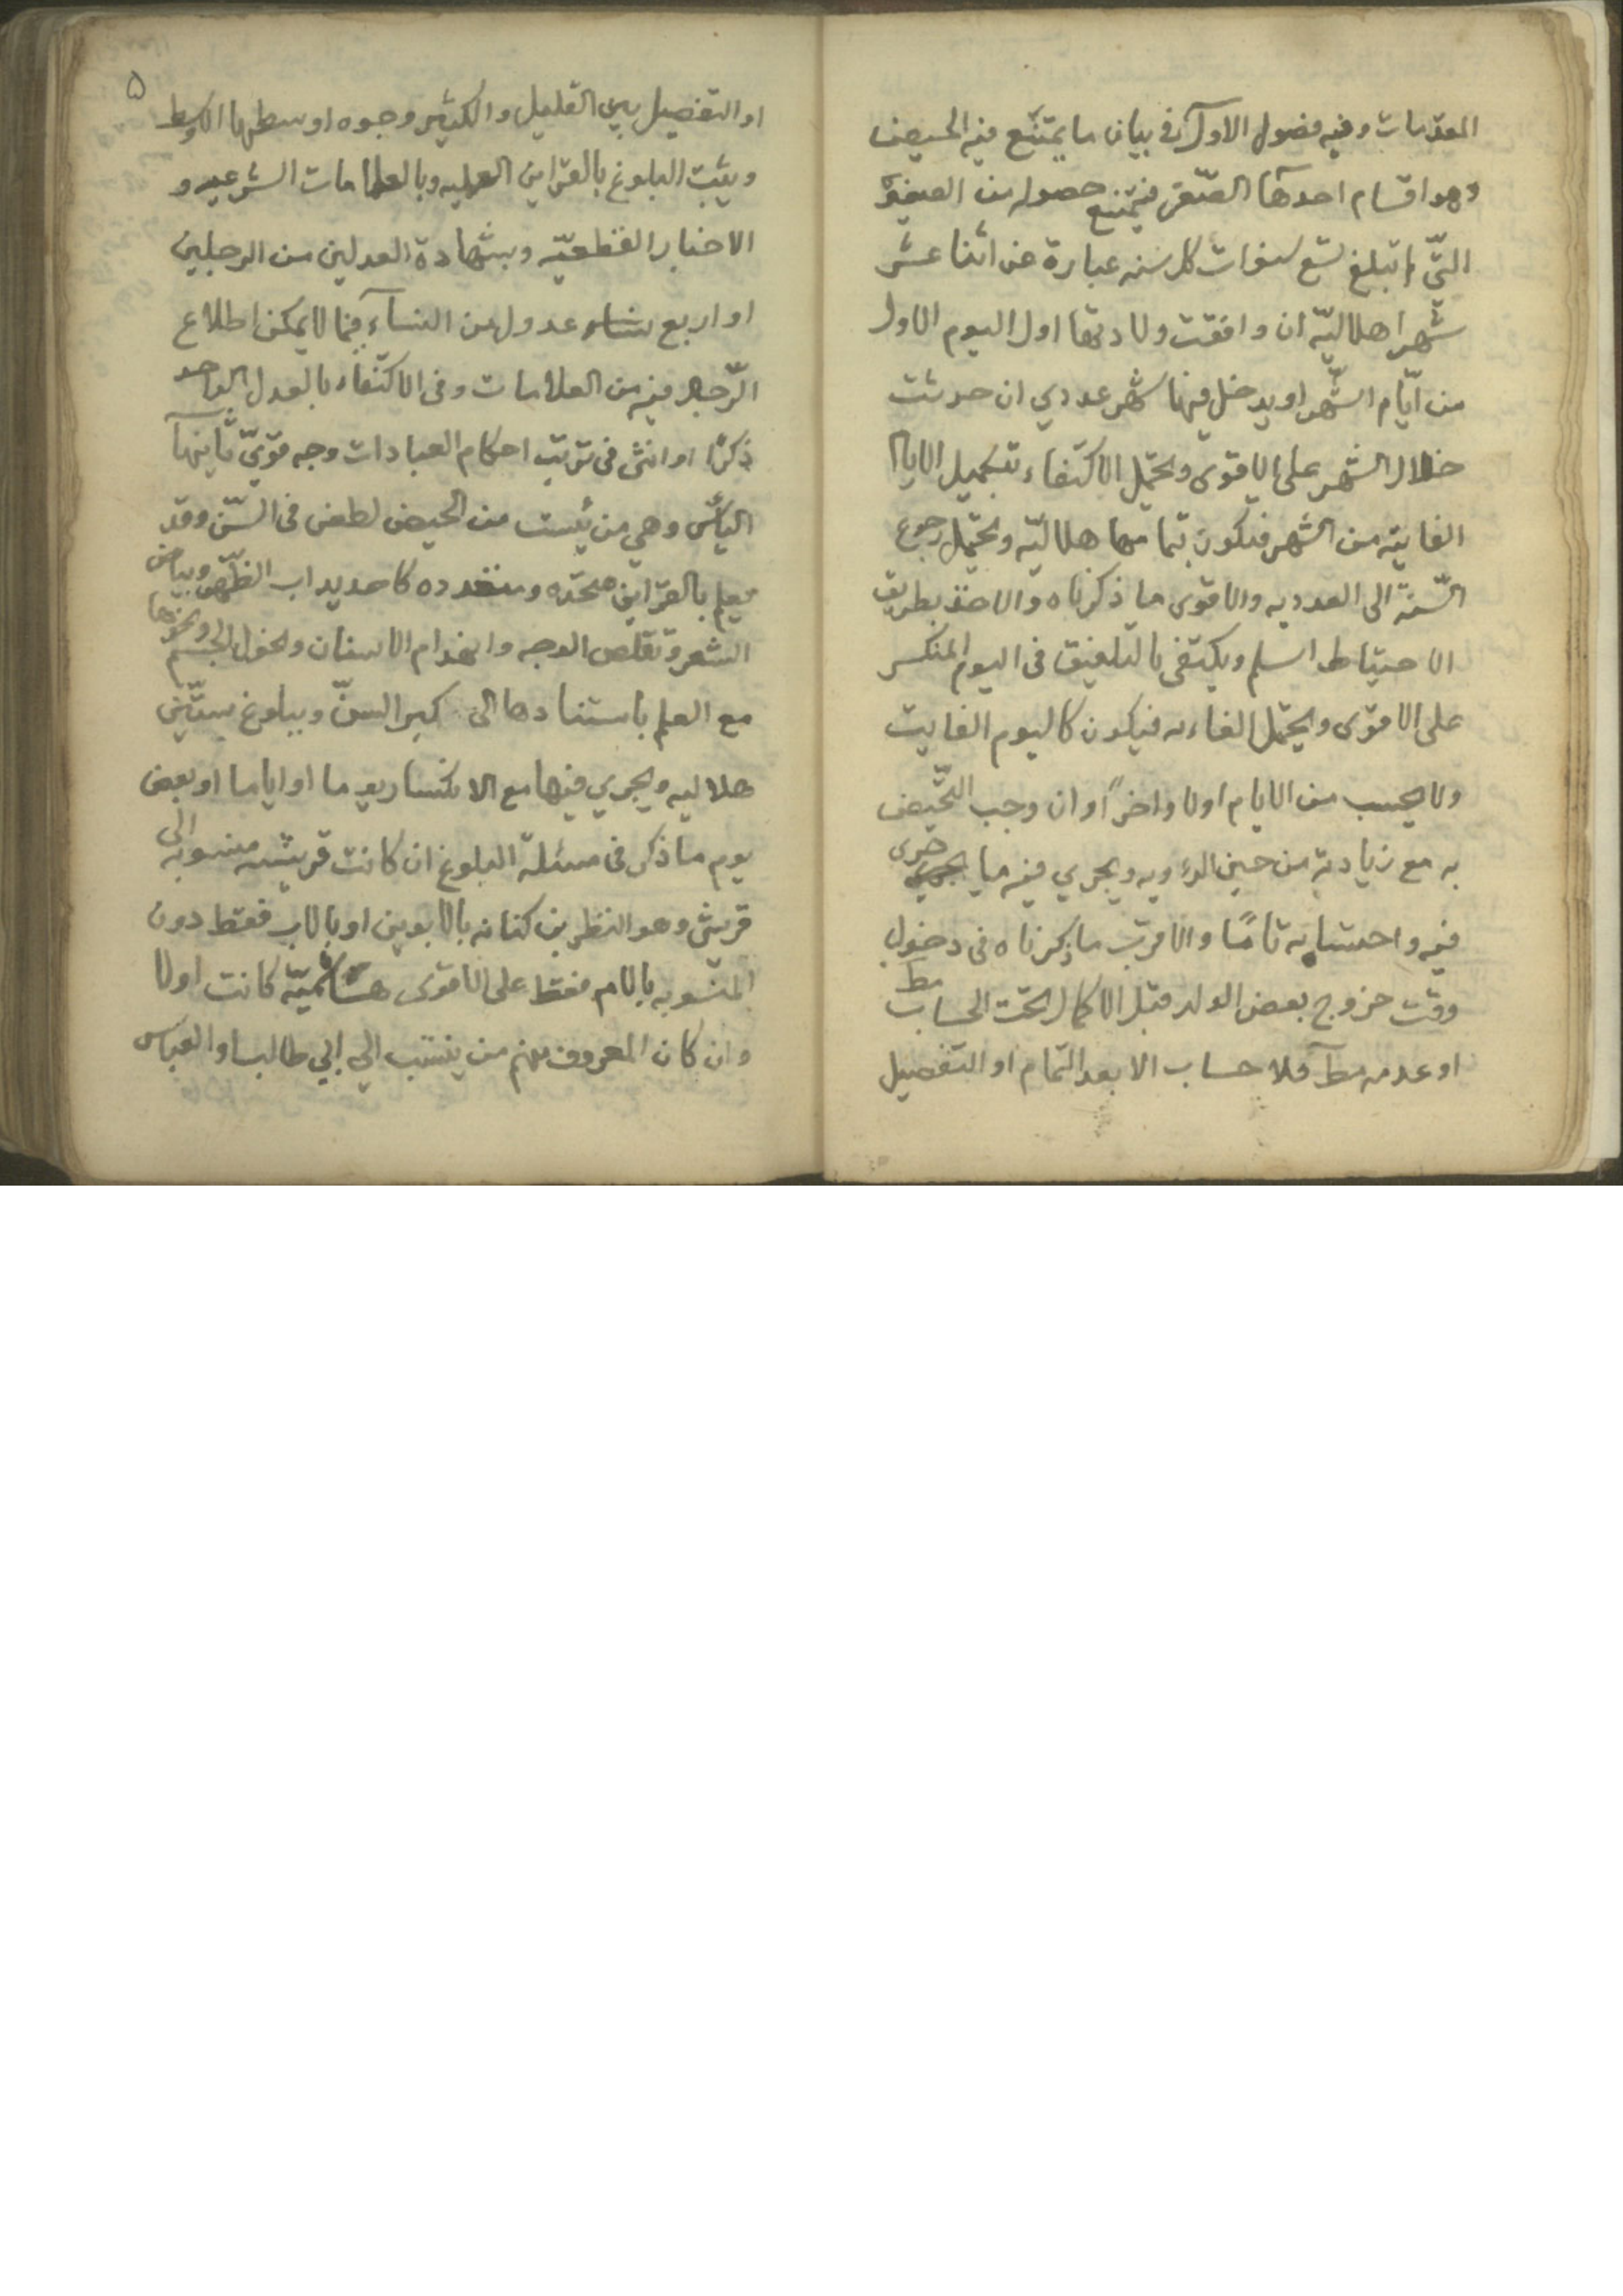 المقدمات وفيه فصول الاول في بيان ما يمتنع فيه الحيض
وهو اقسام احدها الصّغر فيمتنع حصوله من الصغيرة
التّي لم تبلغ تسع سنوات كل سنه عبارة عن اثنا عشر
شهرا هلاليّه ان وافقت ولادتها اول اليوم الاول
من ايّام الشّهر او يدخل فيها شهر عددي ان حدثت
خلال الشهر على الاقوى ويحتمل الاكتفاء بتكميل الايام
الفايته من الشهر فتكون تمامها هلاليّه ويحتمل رجوع
السّنة الى العدديه والاقوى ما ذكرناه والاخذ بطريق
الاحتياط اسلم ويكتفى بالتلفيق فى اليوم المنكسر
على الاقوى ويحتمل الغاءه فيكون كاليوم الفايت
ولا يحسب من الايام اولا واخرًا وان وجب التّحيض
به مع زيادته من حين الرءويه ويجري فيه ما جرى
فيه واحتسابه تامًا والاقرب ما ذكرناه فى دخول
وقت خروج بعض الولد قبل الاكمال تحت الحساب مط
او عدمه مط فلا حساب الا بعد التّمام او التفصيل
۵
او التفصيل بين القليل والكثير وجوه اوسطها الاوسط
ويثبت البلوغ بالقراين العلميه وبالعلامات الشرعيه و
الاخبار القطعيّه وبشهادة العدلين من الرجلين
او اربع نساء عدول من النسآء فيما لا يمكن اطلاع
الرّجال فيه من العلامات وفى الاكتفاء بالعدل الواحد
ذكرًا او انثى فى ترتيب احكام العبادات وجه قويّ ثانيهآ
اليأس وهي من يئست من الحيض لطعن فى السّن وقد
يعلم بالقراين متحده ومتعدده كاحديداب الظّهر وبياض
الشعر وتقلص الوجه وانهدام الاسنان ونحول الجسم ونحوها
مع العلم باستنادها الى كبر السنّ وببلوغ ستّين
هلاليه ويجري فيها مع الانكسار يوما او اياما او بعض
يوم ما ذكر فى مسئلة البلوغ ان كانت قريشيه منسوبه الى
قريش وهو النظر بن كنانه بالابوين او بالاب فقط دون
المنسوبه بالام فقط على الاقوى هشاميّه كانت اولا
وان كان المعروف منهم من ينتسب الى ابي طالب او العباس